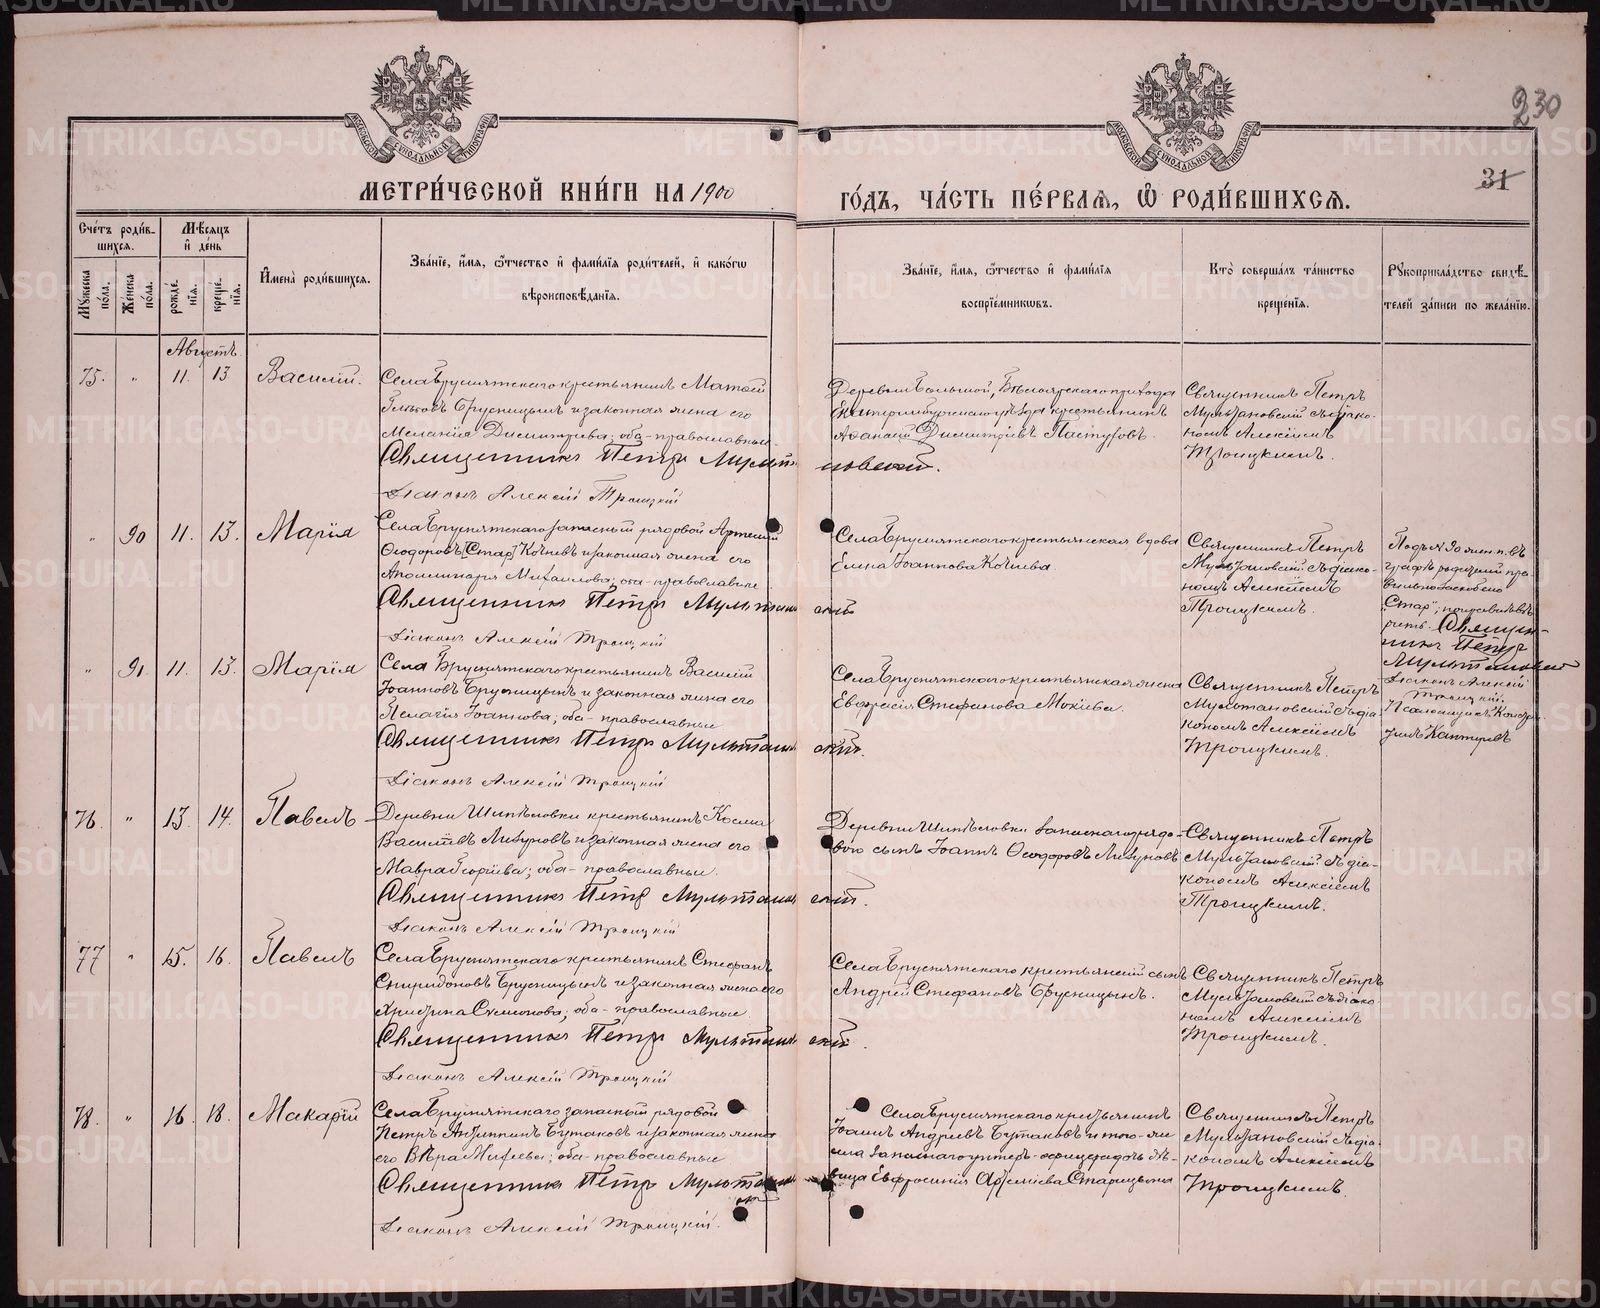 230
31
МОСКОВСКОЙ СѴНОДАЛЬНОЙ ТИПОГРАФІИ
МОСКОВСКОЙ СѴНОДАЛЬНОЙ ТИПОГРАФІИ
МЕТРИ́ЧЕСКОЙ КНИ́ГИ НА 1900 ГО́ДЪ, ЧА́СТЬ ПЕ́РВАѦ, Ѡ РОДИ́ВШИХСѦ.
Сче́тъ роди́в-
шихся.
Мѣ́сяцъ
и҆ де́нь
Мꙋ́жеска
по́ла.
Же́нска
по́ла.
рожде́-
нїѧ.
креще́-
нїѧ.
И҆мена̀ роди́вшихся.
Зва́нїе, и҆́мѧ, ѻ҆́тчество и҆ фами́лїѧ роди́телей, и҆ како́гѡ
вѣроисповѣ́данїѧ.
Зва́нїе, и҆́мѧ, ѻ҆́тчество и҆ фами́лїѧ
воспрїе́мникѡвъ.
Кто̀ соверша́лъ та́инство
креще́нїѧ.
Рꙋкоприкла́дство свидѣ́-
телей за́писи по жела́нїю.
Августъ.
75. " 11. 13 Василій.
Села Бруснятскаго крестьянинъ Матѳей
Глѣбовъ Брусницынъ и законная жена его
Меланія Димитріева; оба православные.
Священникъ Петръ Мультановскій.
Діаконъ Алексій Троицкій
Деревни Большой, Бѣлоярскаго прихода
Екатеринбургскаго уѣзда крестьянинъ
Аѳанасій Димитріевъ Пастуховъ.
Священникъ Петръ
Мультановскій съ діако-
номъ Алексіемъ
Троицкимъ.
" 90 11. 13. Марія
Села Бруснятскаго запасный рядовой Артемій
Ѳеодоровъ [Стар] Кочневъ и законная жена его
Аполлинарія Михаилова; оба православные
Священникъ Петръ Мультановскій
Діаконъ Алексій Троицкій
Села Бруснятскаго крестьянская вдова
Елена Іоаннова Кочнева.
Священникъ Петръ
Мультановскій съ діако-
номъ Алексіемъ
Троицкимъ.
Подъ № 90 жен. п. въ
графѣ родителей
"Стар",
Священ-
никъ Петръ
Мультановскій
Діаконъ Алексій
Троицкій.
Псаломщикъ
" 91. 11. 13. Марія
Села Бруснятскаго крестьянинъ Василій
Іоанновъ Брусницынъ и законная жена его
Пелагія Іоаннова; оба православные
Священникъ Петръ Мультановскій.
Діаконъ Алексій Троицкій
Села Бруснятскаго крестьянская жена
Евпраксія Стефанова Мокѣева.
Священникъ Петръ
Мультановскій съ діа-
кономъ Алексіемъ
Троицкимъ.
76. " 13. 14. Павелъ
Деревни Шипѣловки крестьянинъ Косма
Васильевъ Лизуновъ и законная жена его
Мавра Георгіева; оба православные.
Священникъ Петръ Мультановскій.
Діаконъ Алексій Троицкій
Деревни Шипѣловки запаснаго рядо-
вого сынъ Іоаннъ Ѳеодоровъ Лизуновъ
Священникъ Петръ
Мультановскій съ діа-
кономъ Алексіемъ
Троицкимъ.
77 " 15. 16. Павелъ
Села Бруснятскаго крестьянинъ Стефанъ
Спиридоновъ Брусницынъ и законная жена его
Христина Симеонова; оба православные.
Священникъ Петръ Мультановскій.
Діаконъ Алексій Троицкій
Села Бруснятскаго крестьянскій сынъ
Андрей Стефановъ Брусницынъ.
Священникъ Петръ
Мультановскій съ діако-
номъ Алексіемъ
Троицкимъ.
78. " 16. 18. Макарій
Села Бруснятскаго запасный рядовой
Петръ Бутаковъ и законная жена
его Вѣра; оба православные
Священникъ Петръ Мультановскій
Діаконъ Алексій Троицкій.
Села Бруснятскаго крестьянинъ
Іоаннъ Андреевъ Бутаковъ и того же
села запаснаго унтеръ-офицера дочь дѣ-
вица Евфросинія Арсеніева Старицына
Священникъ Петръ
Мультановскій съ діа-
кономъ Алексіемъ
Троицкимъ.
METRIKI.GASO-URAL.RU